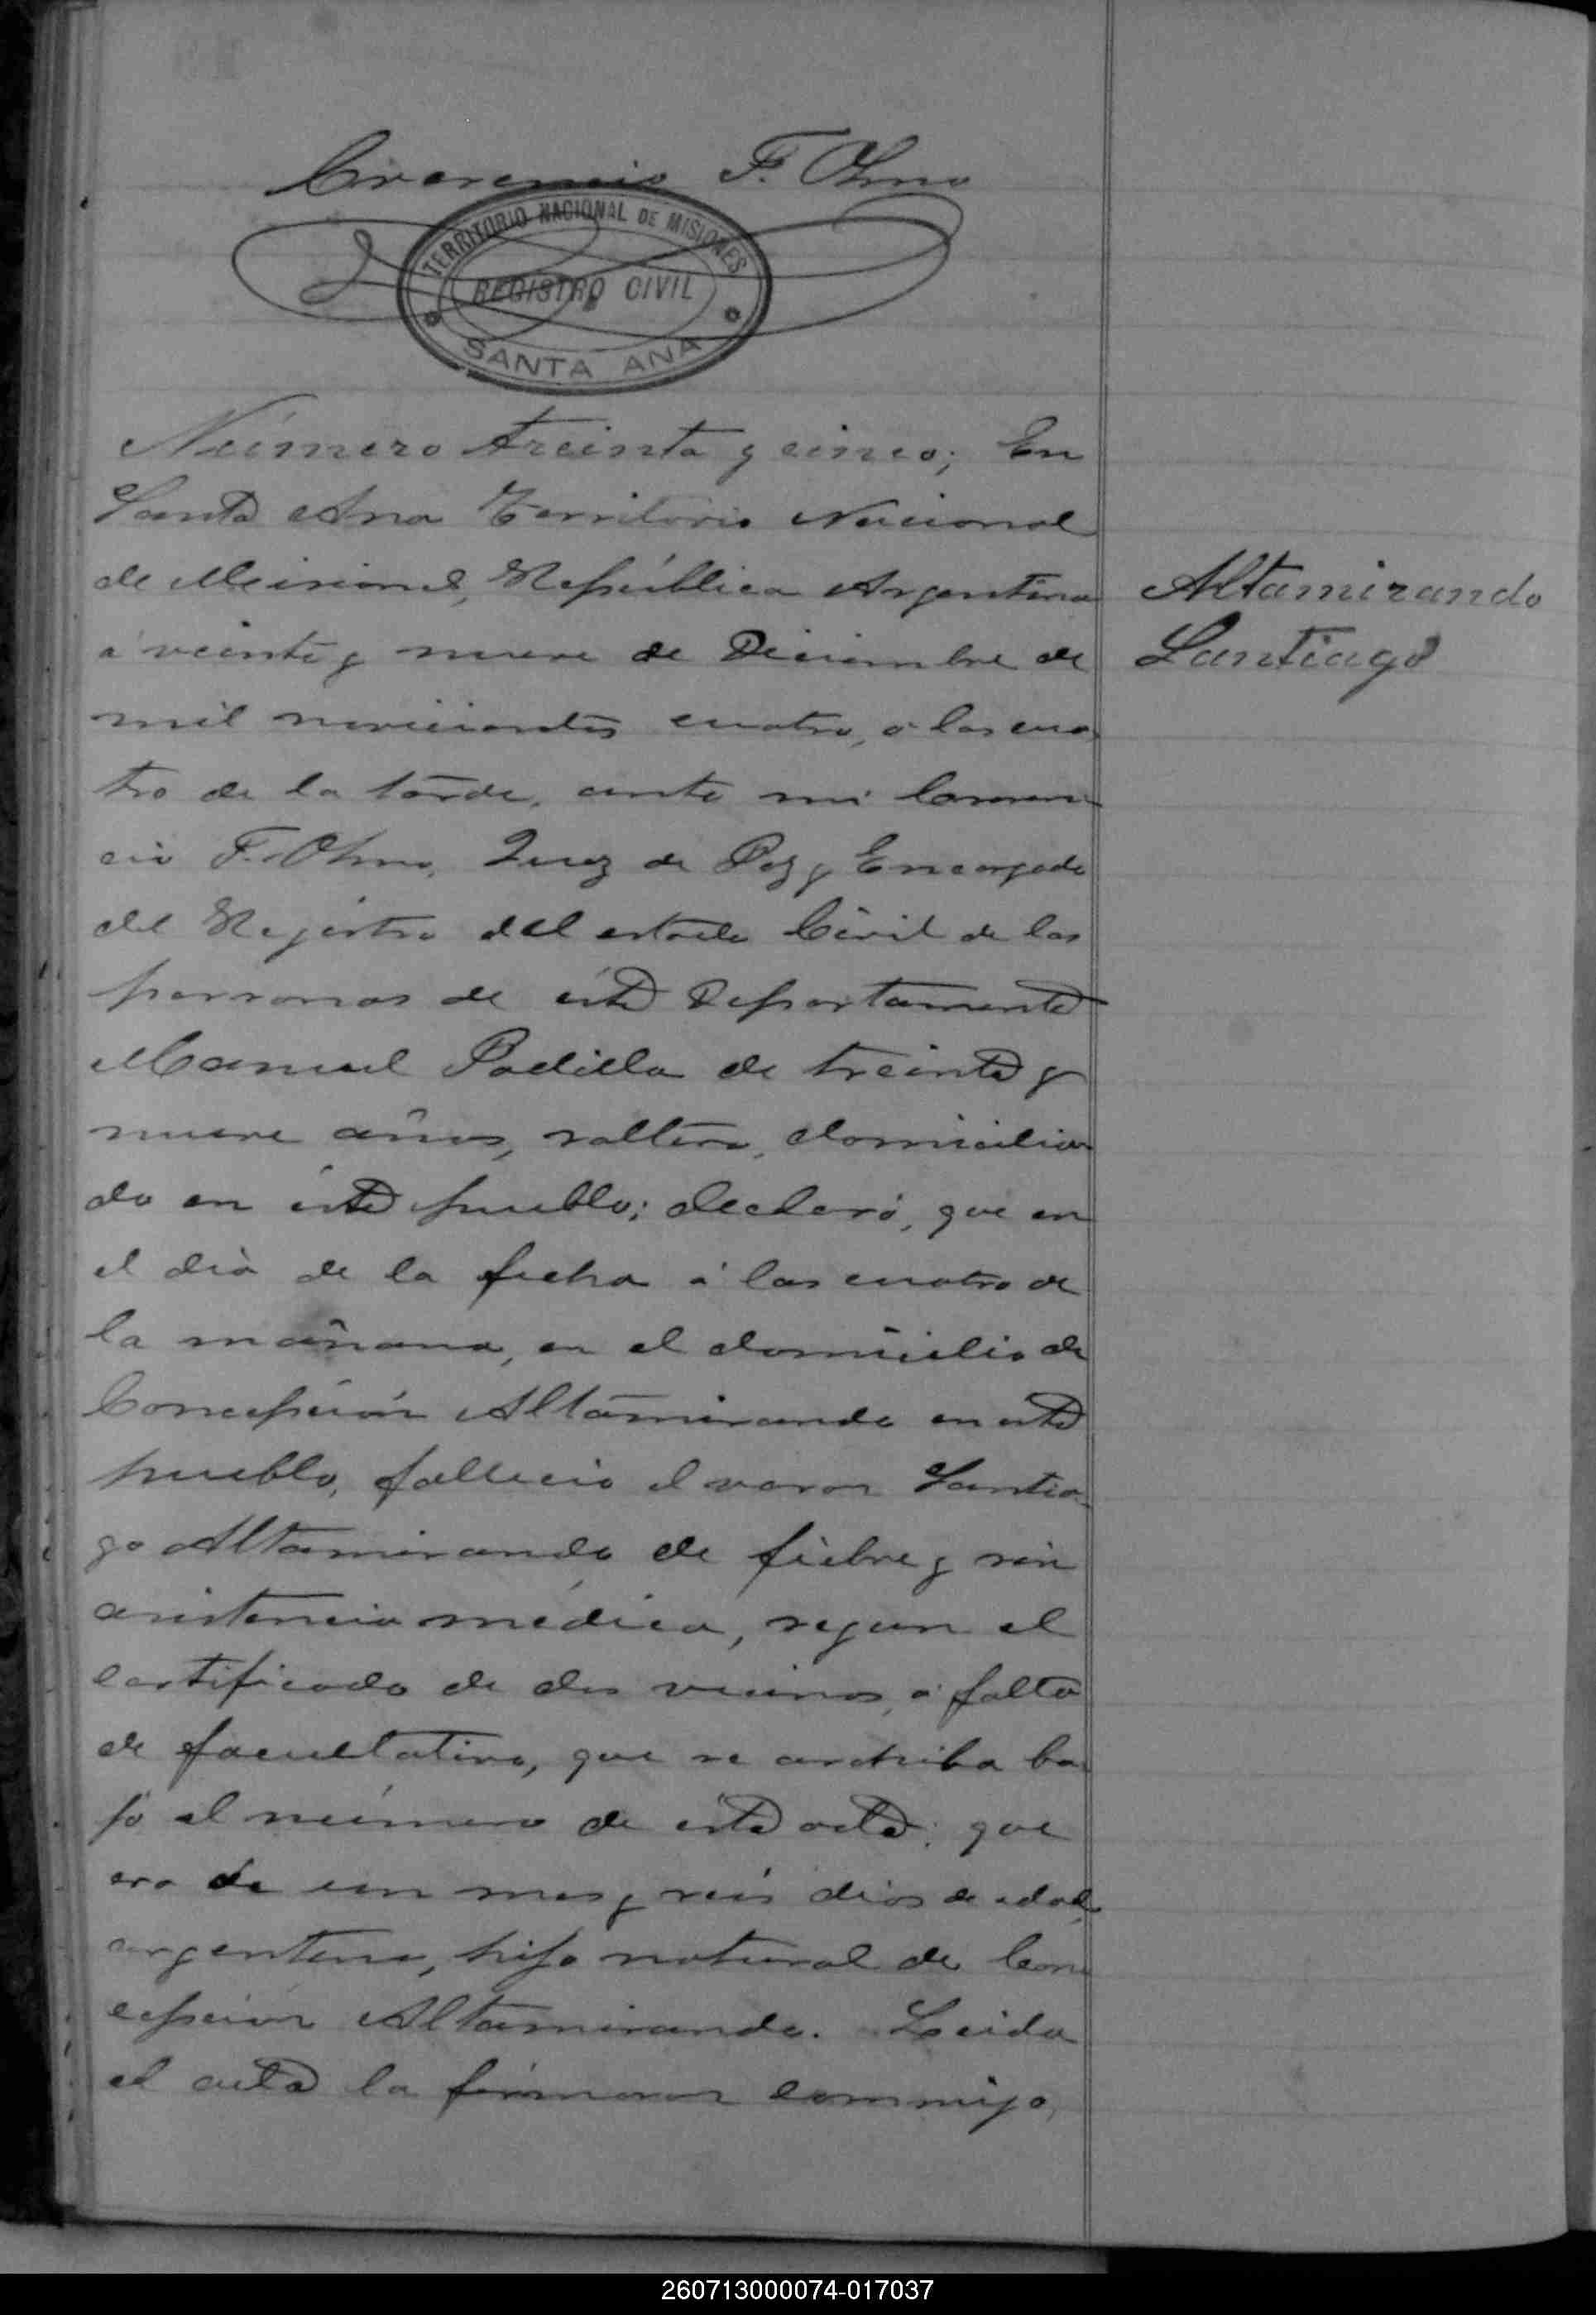 F. Olmo
TERRITORIO NACIONAL DE MISIONES
REGISTRO CIVIL
SANTA ANA
Número treinta y cinco; En
Santa Ana Territorio Nacional
de Misiones, República Argentina
Altamirando
á veinte y nueve de Diciembre de
Santiago
mil novecientos cuatro, á las cua
tro de la tarde, ante mi
cio F. Olmo, Juez de Paz y Encargado
del Registro del estado Civil de las
personas de éste Departamento
Manuel Padilla de treinta y
nueve años, soltero, domicilia
do en éste pueblo; declaró, que en
el dia de la fecha á las cuatro de
la mañana, en el domicilio de
Concepción Altamirando en este
pueblo, falleció el varon Santia
go Altamirando de fiebre y sin
asistencia médica, segun el
certificado de dos vecinos, á falta
de facultativo, que se archiba ba
jo el número de ésta acta; que
era de un mes y seis dias de edad,
argentino, hijo natural de Con
cepción Altamirando. Leida
el acta la firmaron conmigo,
260713000074-017037